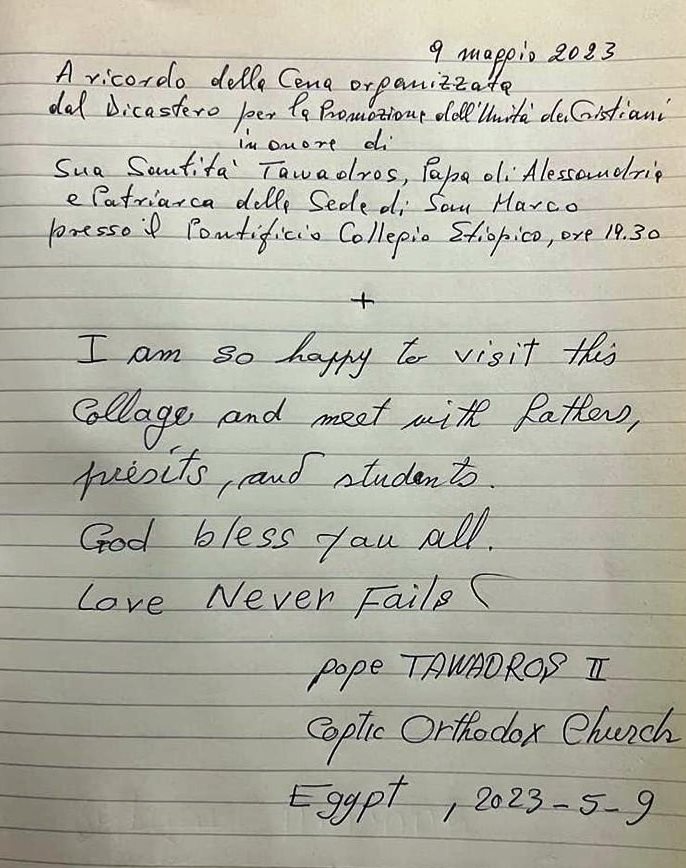 9 maggio 2023
A ricordo della Cena organizzata
dal Dicastero per la Promozione dell'Unità dei Cristiani
in onore di
Sua Santità Tawadros, Papa di Alessandria
e Patriarca della Sede di San Marco
presso il Pontificio Collegio Etiopico, ore 19.30
+
I am so happy to visit this
Collage and meet with fathers,
priesits, and students.
God bless you all.
Love Never Fails
pope TAWADROS II
Coptic Orthodox Church
Egypt, 2023-5-9